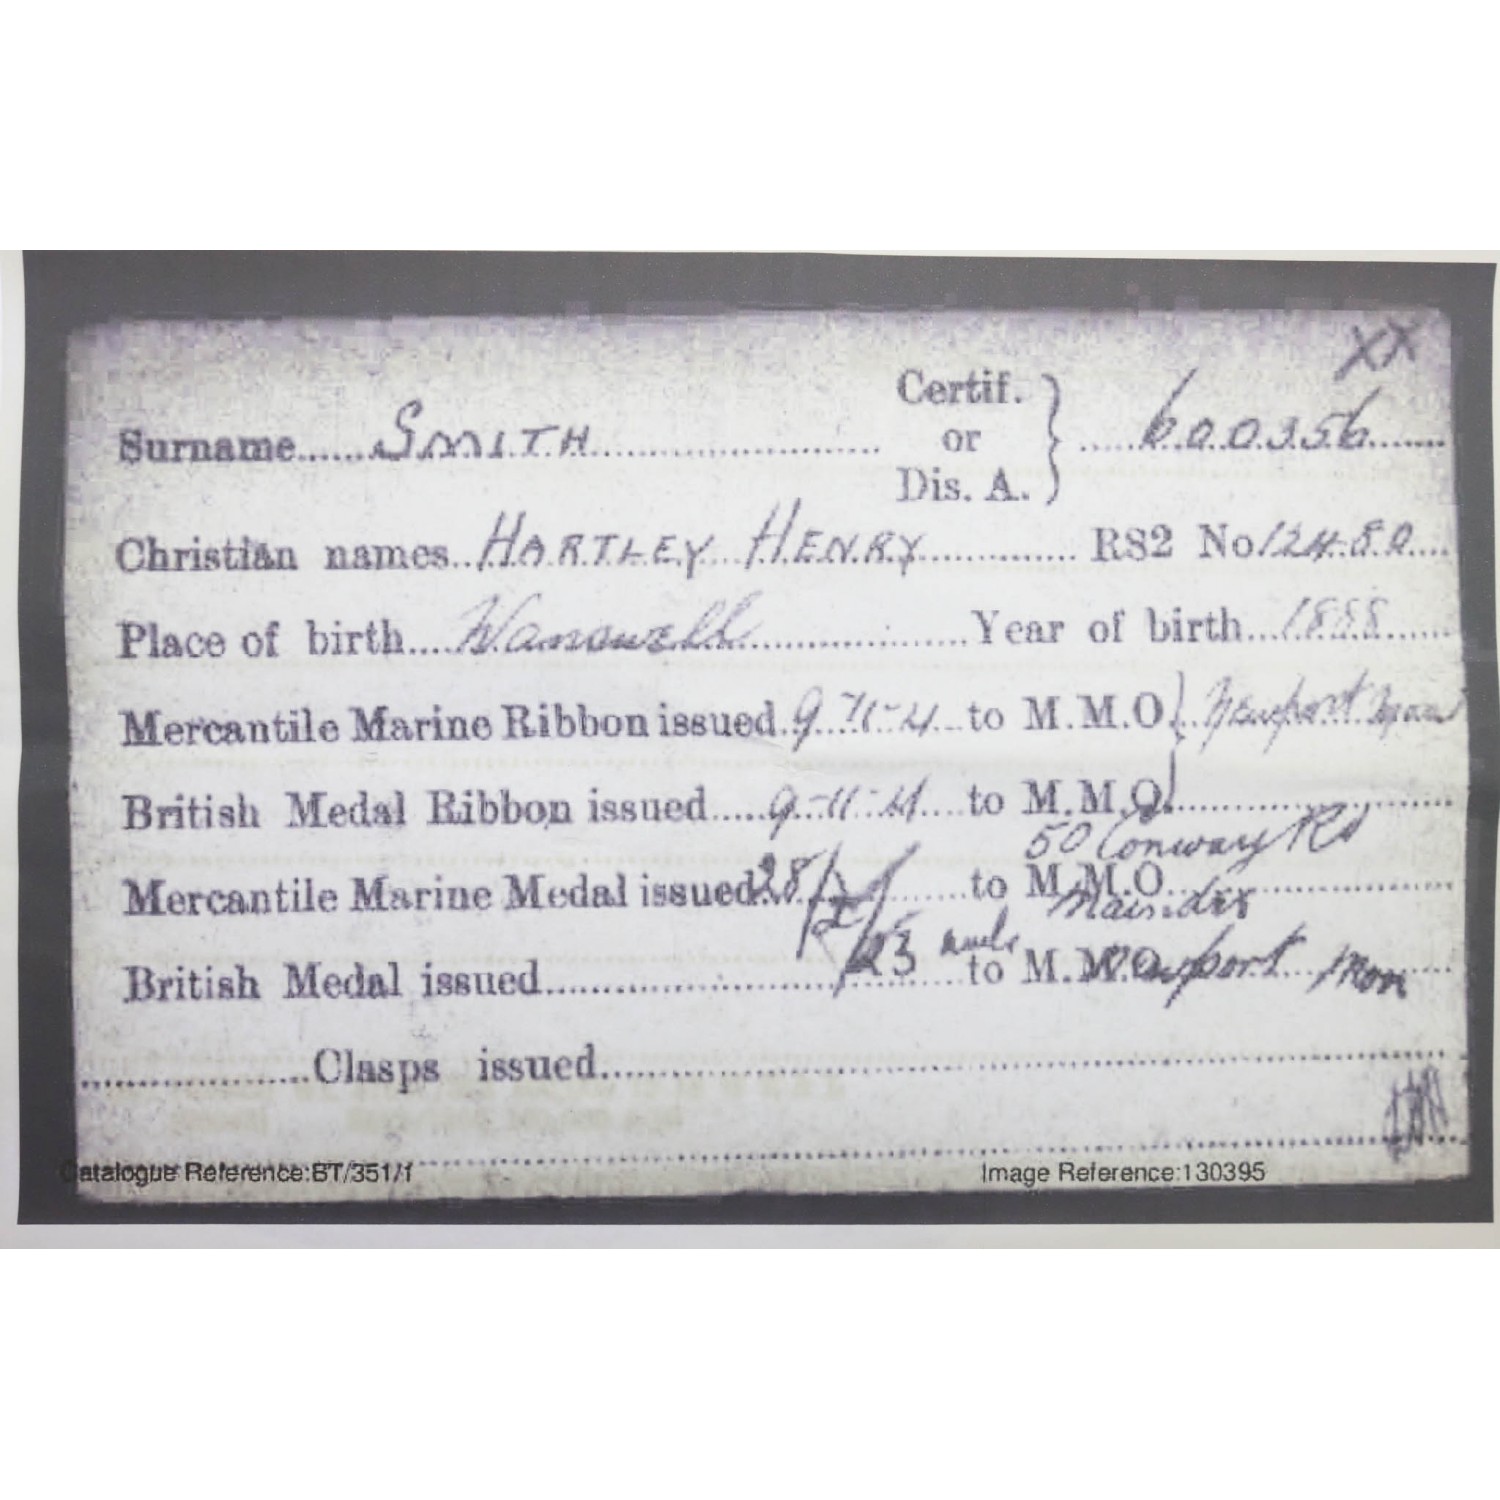 XX
Surname SMITH Certif. or Dis. A. } 600356
Christian names HARTLEY HENRY RS2 No 12480
Place of birth Wanswell Year of birth 1888
Mercantile Marine Ribbon issued 9-11-21 to M.M.O. } Newport Mon
British Medal Ribbon issued 9-11-21 to M.M.O.
50 Conway Rd
Mercantile Marine Medal issued 28/ to M.M.O.
Maindee
British Medal issued 23 to M.M.O. Newport Mon
Clasps issued
Catalogue Reference:BT/351/1 Image Reference:130395